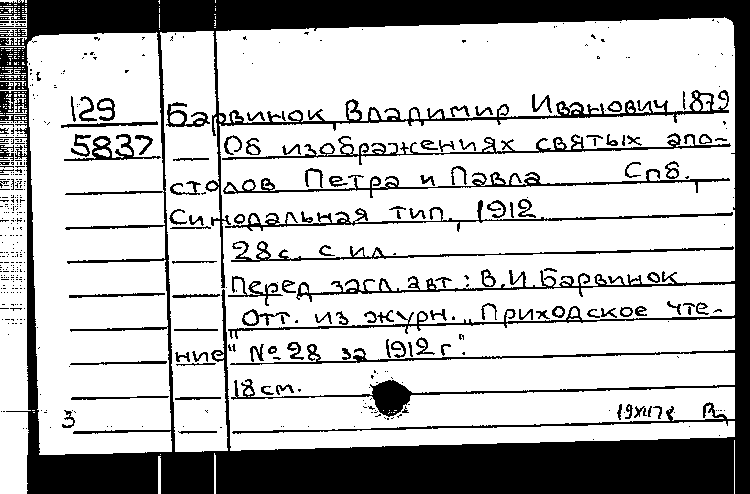 129 Барвинок, Владимир Иванович, 1879
5837 Об изображениях святых апо-
столов Петра и Павла Спб.,
Синодальная тип., 1912.
28 с. с ил.
Перед загл. авт.: В.И.Барвинок
"Отт. из журн. „Приходское чте-
ние" № 28 за 1912 г".
18 см.
3